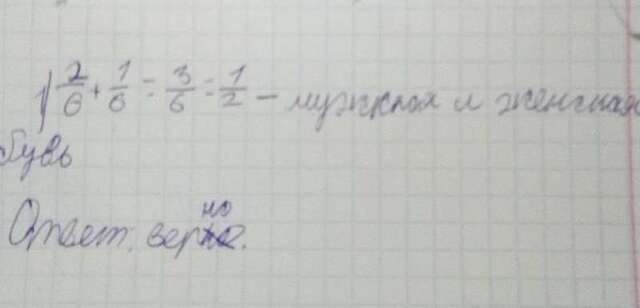 1) 2/6 + 1/6 = 3/6 = 1/2 – мужская и женская
обувь
Ответ: верно.